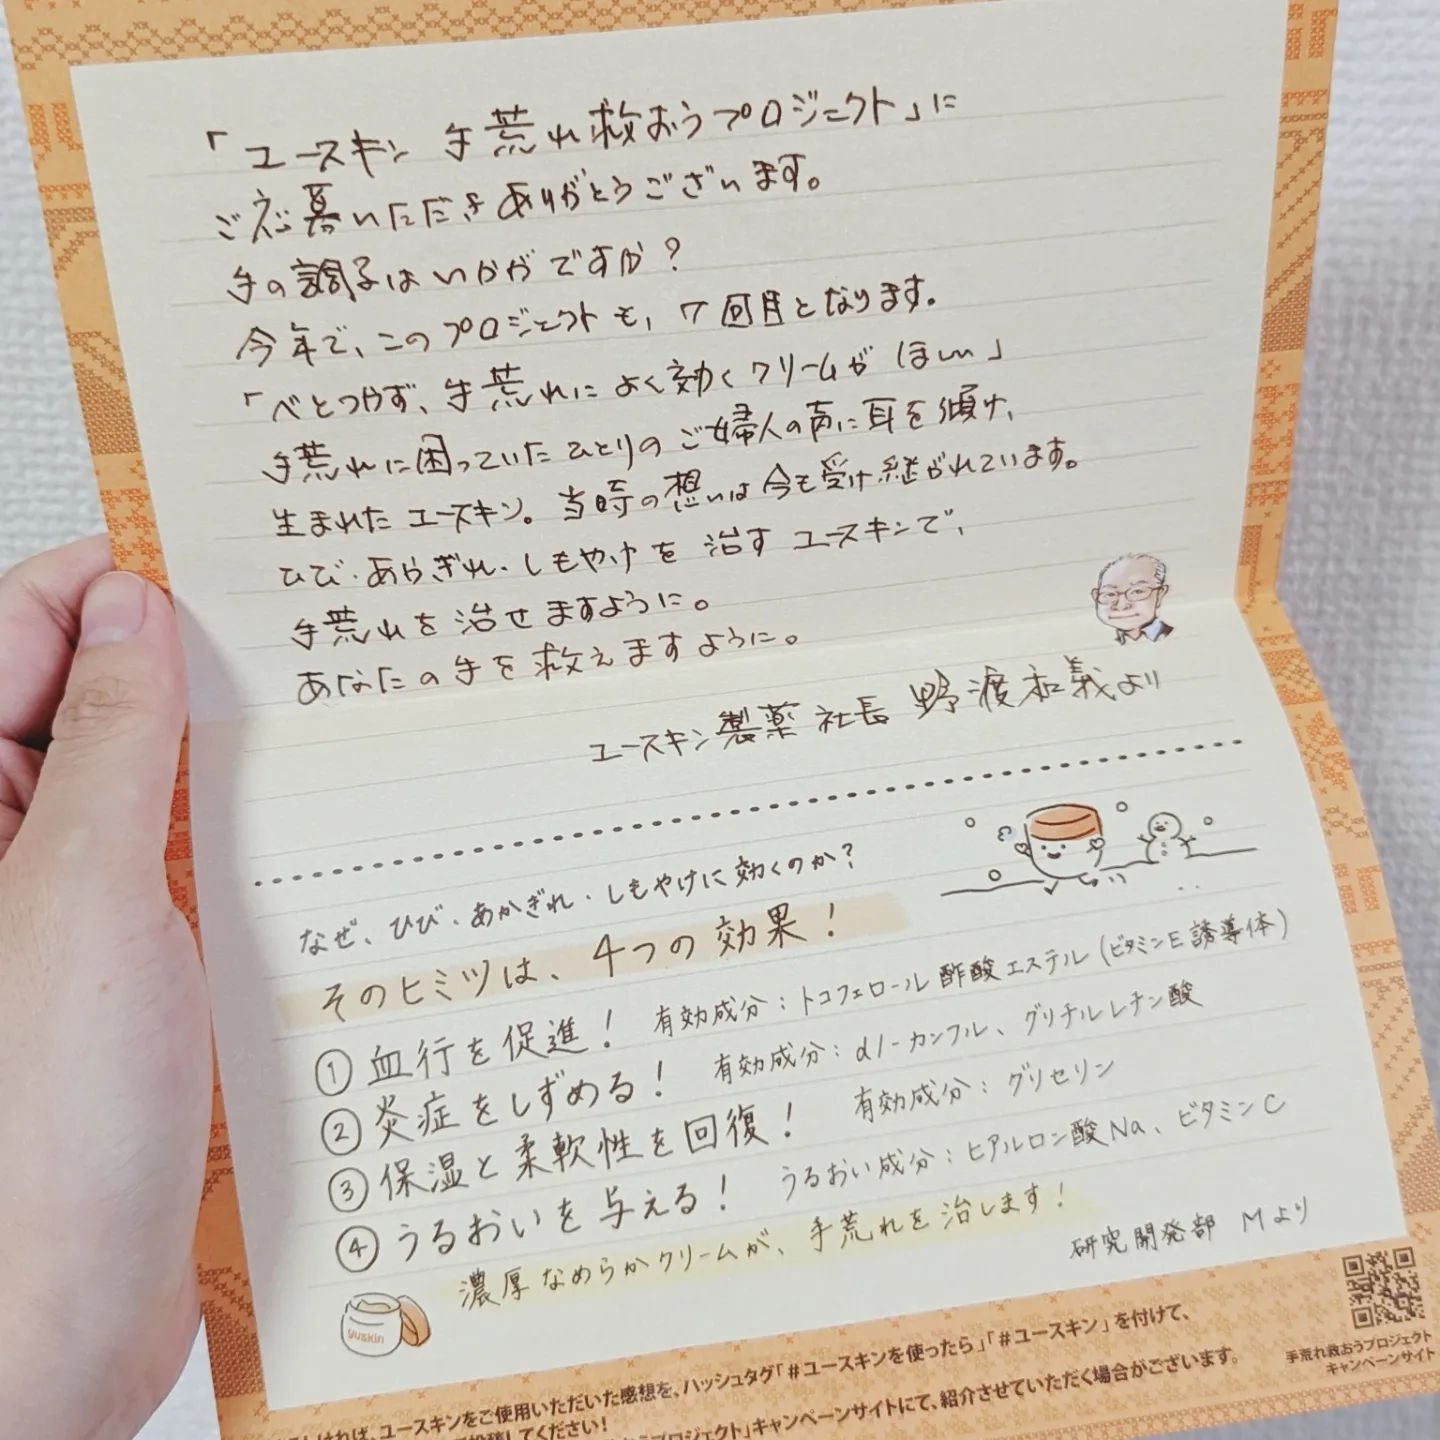 「ユースキン 手荒れ救おうプロジェクト」に
ご応募いただきありがとうございます。
手の調子はいかがですか?
今年で、このプロジェクトも、7回目となります。
「べとつかず、手荒れによく効くクリームがほしい」
手荒れに困っていたひとりのご婦人の声に耳を傾け、
生まれたユースキン。当時の想いは今も受け継がれています。
ひび・あかぎれ・しもやけを治すユースキンで、
手荒れを治せますように。
あなたの手を救えますように。
ユースキン製薬 社長 野渡和義より
なぜ、ひび・あかぎれ・しもやけに効くのか?
そのヒミツは、4つの効果!
①血行を促進! 有効成分:トコフェロール酢酸エステル(ビタミンE誘導体)
②炎症をしずめる! 有効成分:dl-カンフル、グリチルレチン酸
③保湿と柔軟性を回復! 有効成分:グリセリン
④うるおいを与える! うるおい成分:ヒアルロン酸Na、ビタミンC
濃厚なめらかクリームが、手荒れを治します!
研究開発部 Mより
yuskin
手荒れ救おうプロジェクト
キャンペーンサイト
ければ、ユースキンをご使用いただいた感想を、ハッシュタグ「#ユースキンを使ったら」「#ユースキン」を付けて、
投稿してください!
プロジェクト」キャンペーンサイトにて、紹介させていただく場合がございます。